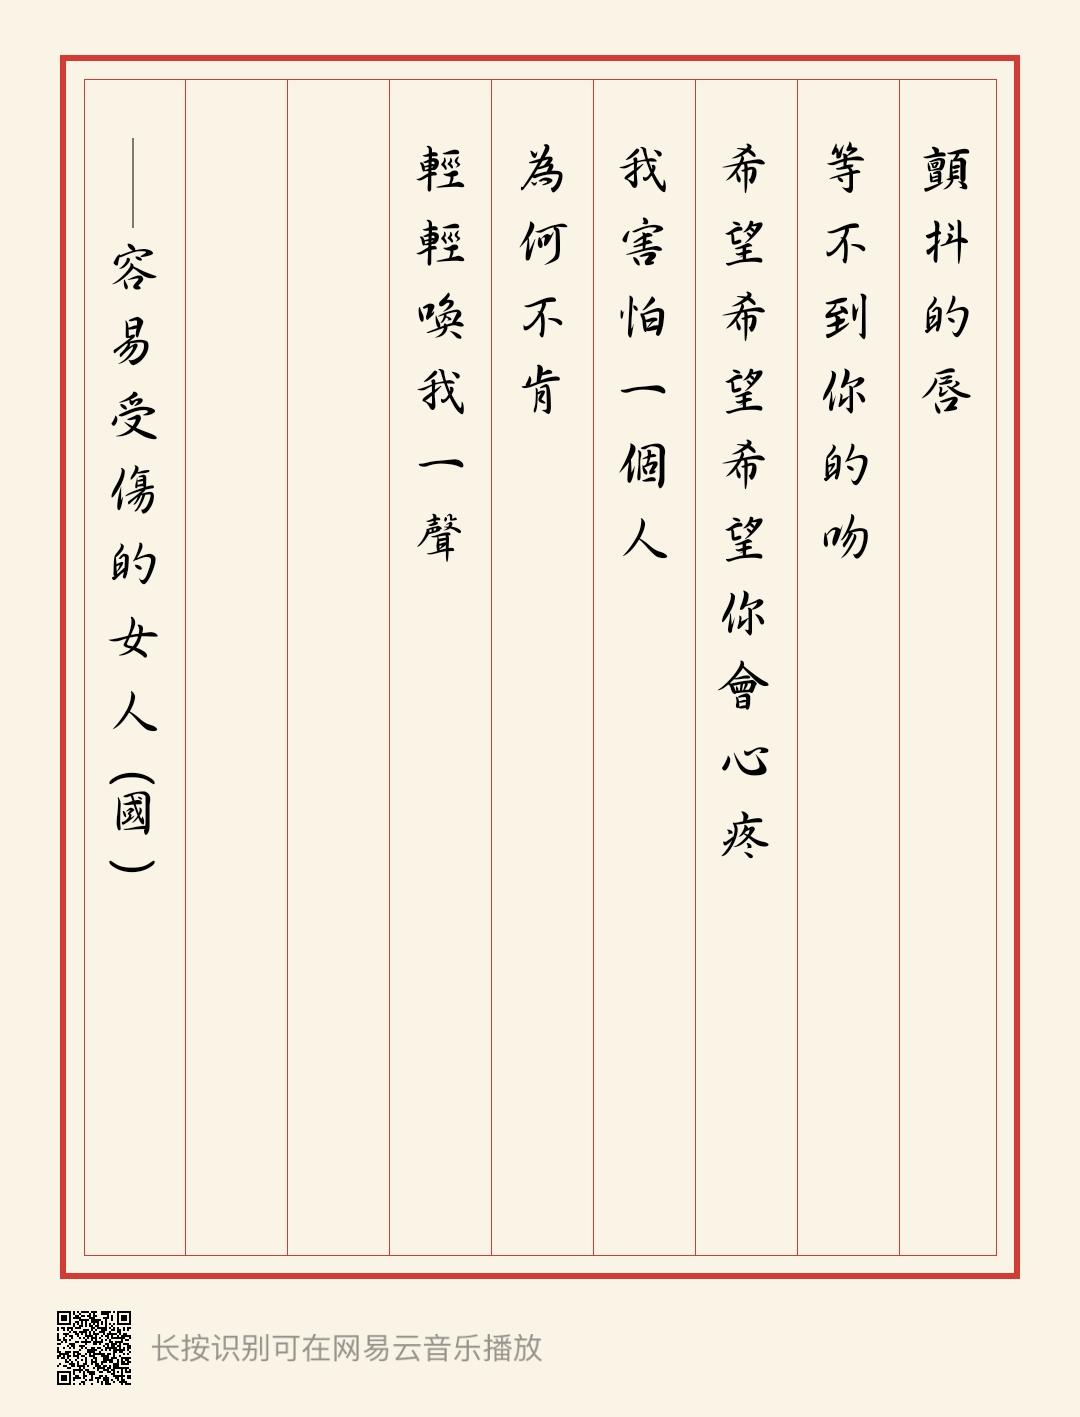 顫抖的唇
等不到你的吻
希望希望希望你會心疼
我害怕一個人
為何不肯
輕輕喚我一聲
——容易受傷的女人(國)
长按识别可在网易云音乐播放